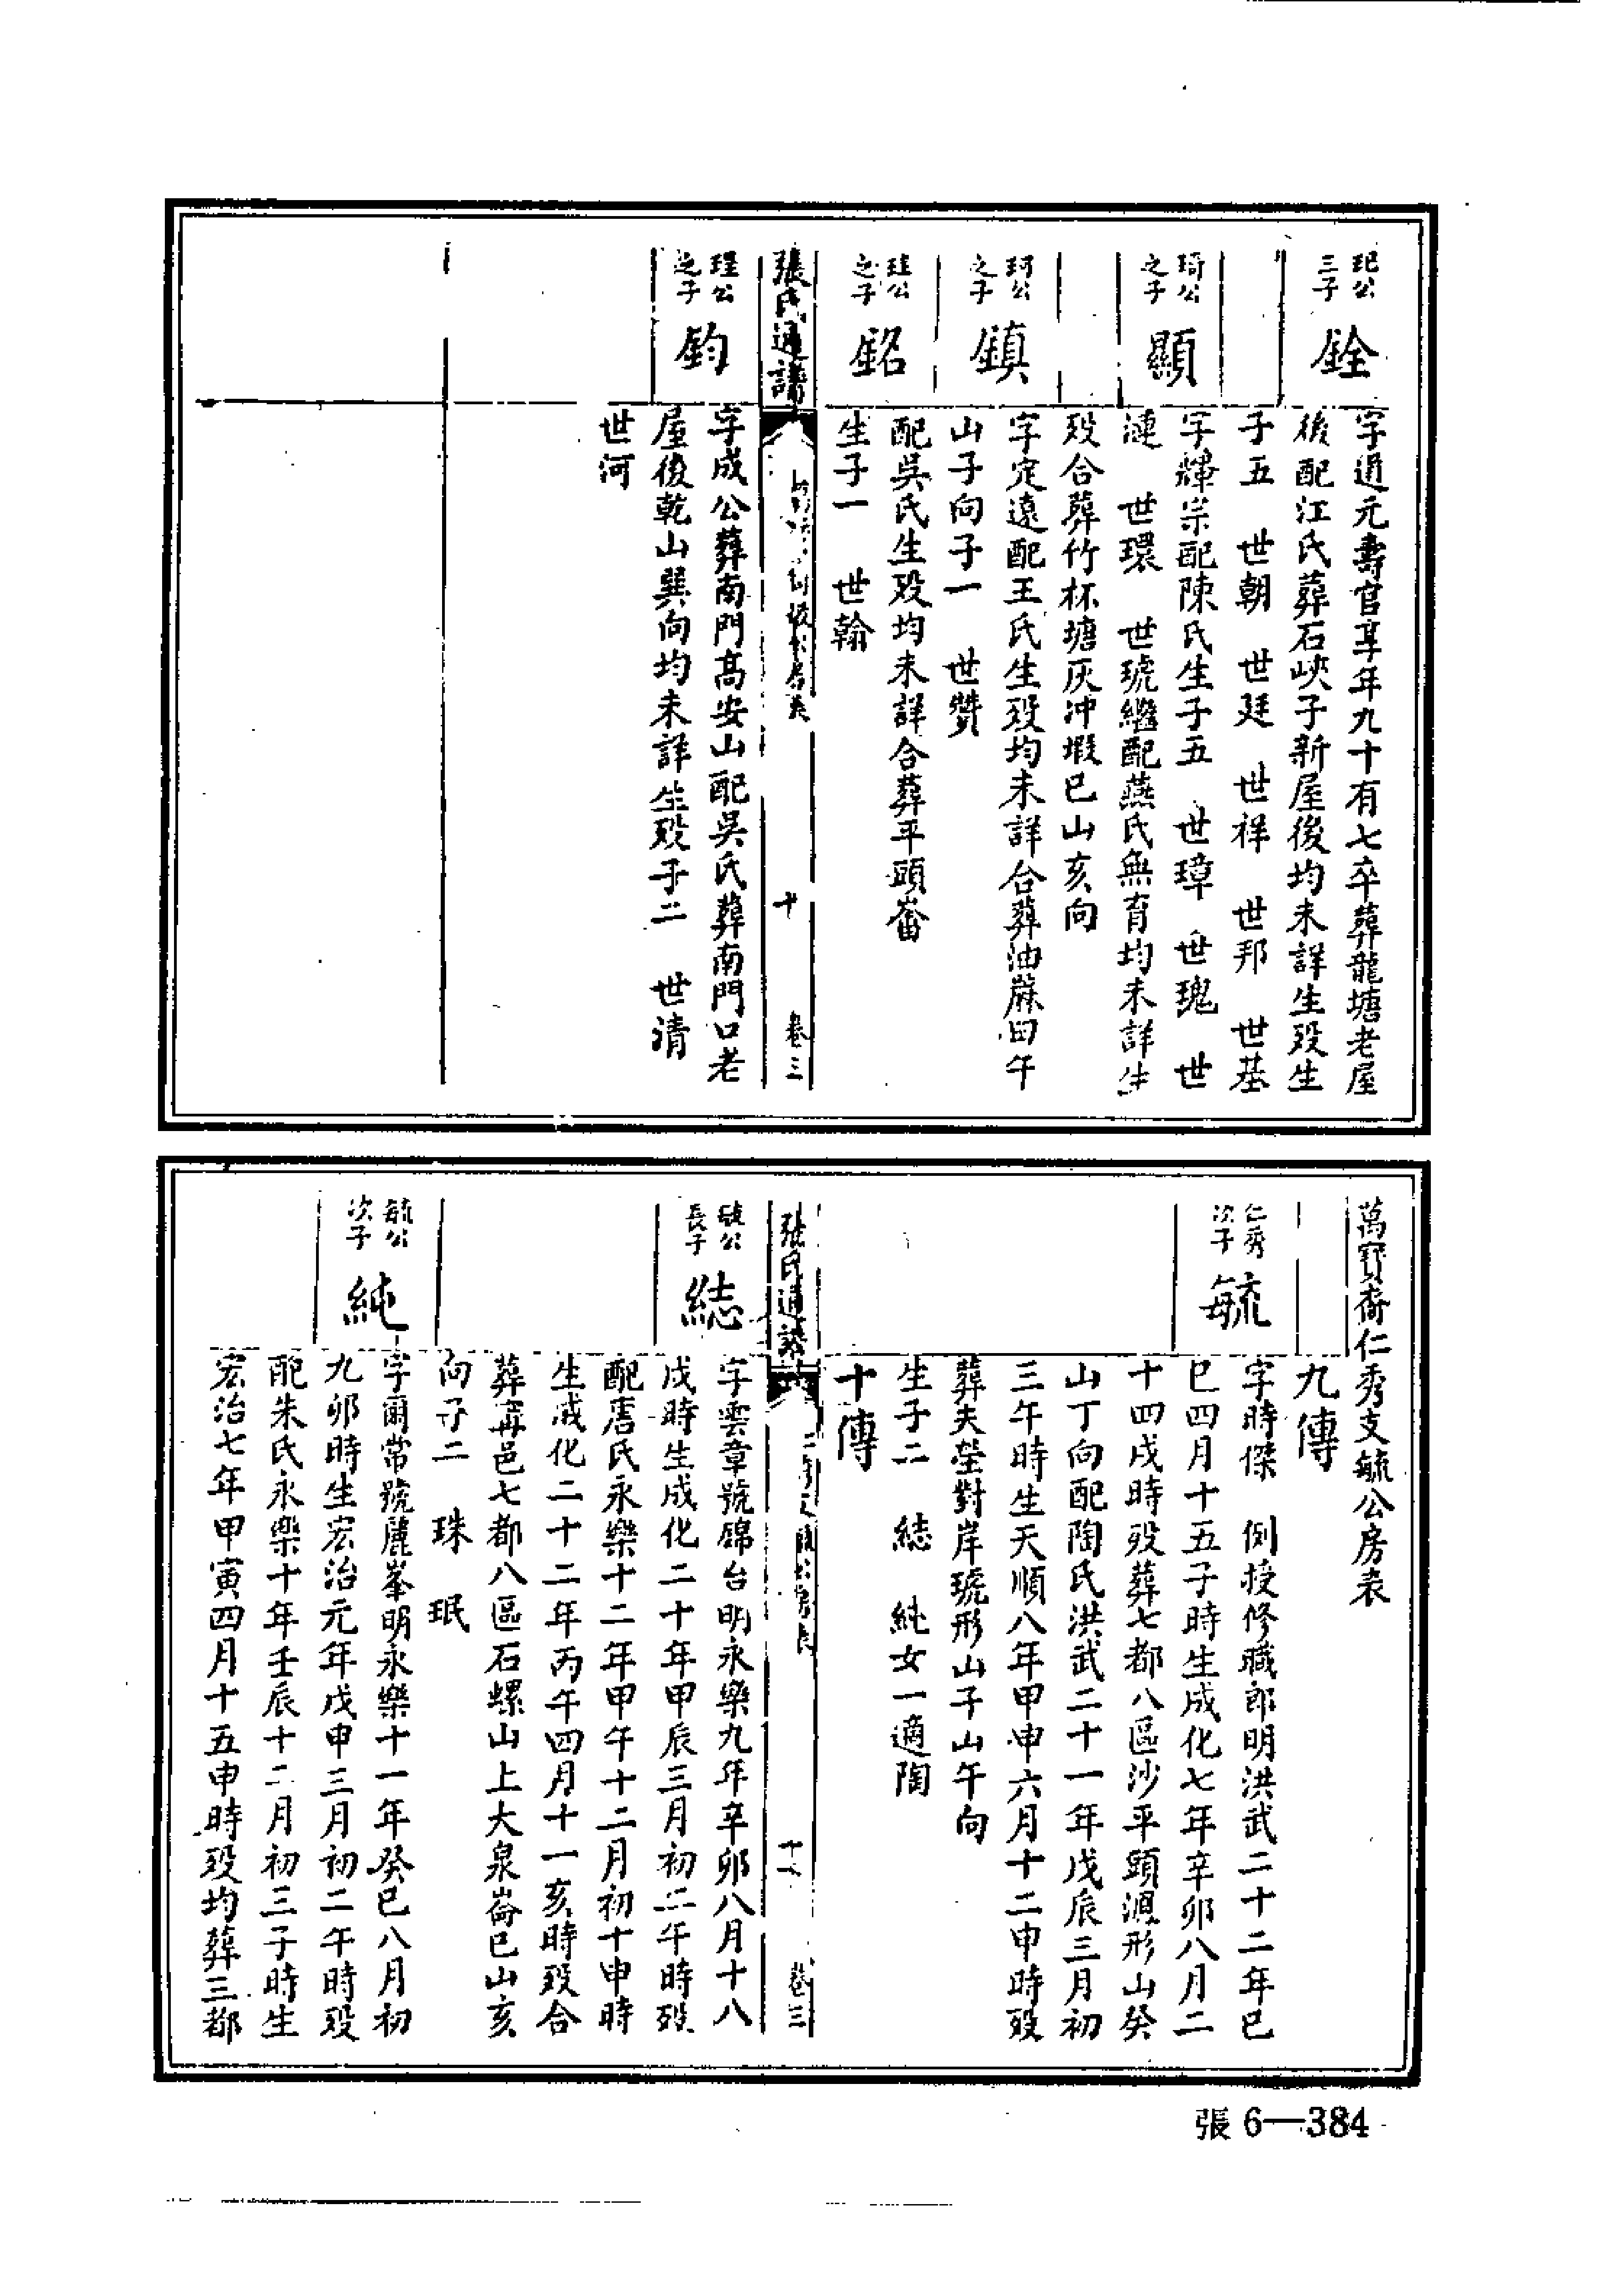 玘公
三子
銓
字通元壽官享年九十有七卒葬龍塘老屋
後配江氏葬石峽子新屋後均未詳生歿生
子五 世朝 世廷 世祥 世邦 世基
琦公
之子
顯
字輝宗配陳氏生子五 世璋 世瑰 世
漣 世環 世琥繼配燕氏無育均未詳生
歿合葬竹杯塘灰冲塅巳山亥向
珂公
之子
鎮
字定遠配王氏生歿均未詳合葬油蔴田午
山子向子一 世贊
珪公
之子
銘
配吳氏生歿均未詳合葬平頭崙
生子一 世翰
張氏通譜
十
卷三
珵公
之子
鈞
字成公葬南門高安山配吳氏葬南門口老
屋後乾山巽向均未詳生歿子二 世清
世河
萬寶裔仁秀支毓公房表
九傳
仁秀
次子
毓
字時傑 例授修職郎明洪武二十二年己
巳四月十五子時生成化七年辛卯八月二
十四戌時歿葬七都八區沙平頭源形山癸
山丁向配陶氏洪武二十一年戊辰三月初
三午時生天順八年甲申六月十二申時歿
葬夫塋對岸琥形山子山午向
生子二 綕 純女一適陶
十傳
張氏通譜
十一
卷三
毓公
長子
綕
字雲章號錦台明永樂九年辛卯八月十八
戌時生成化二十年甲辰三月初二午時歿
配唐氏永樂十二年甲午十二月初十申時
生成化二十二年丙午四月十一亥時歿合
葬甯邑七都八區石螺山上大泉崙巳山亥
向子二 珠 珉
毓公
次子
純
字爾常號麗峯明永樂十一年癸巳八月初
九卯時生宏治元年戊申三月初二午時歿
配朱氏永樂十年壬辰十二月初三子時生
宏治七年甲寅四月十五申時歿均葬三都
張6—384